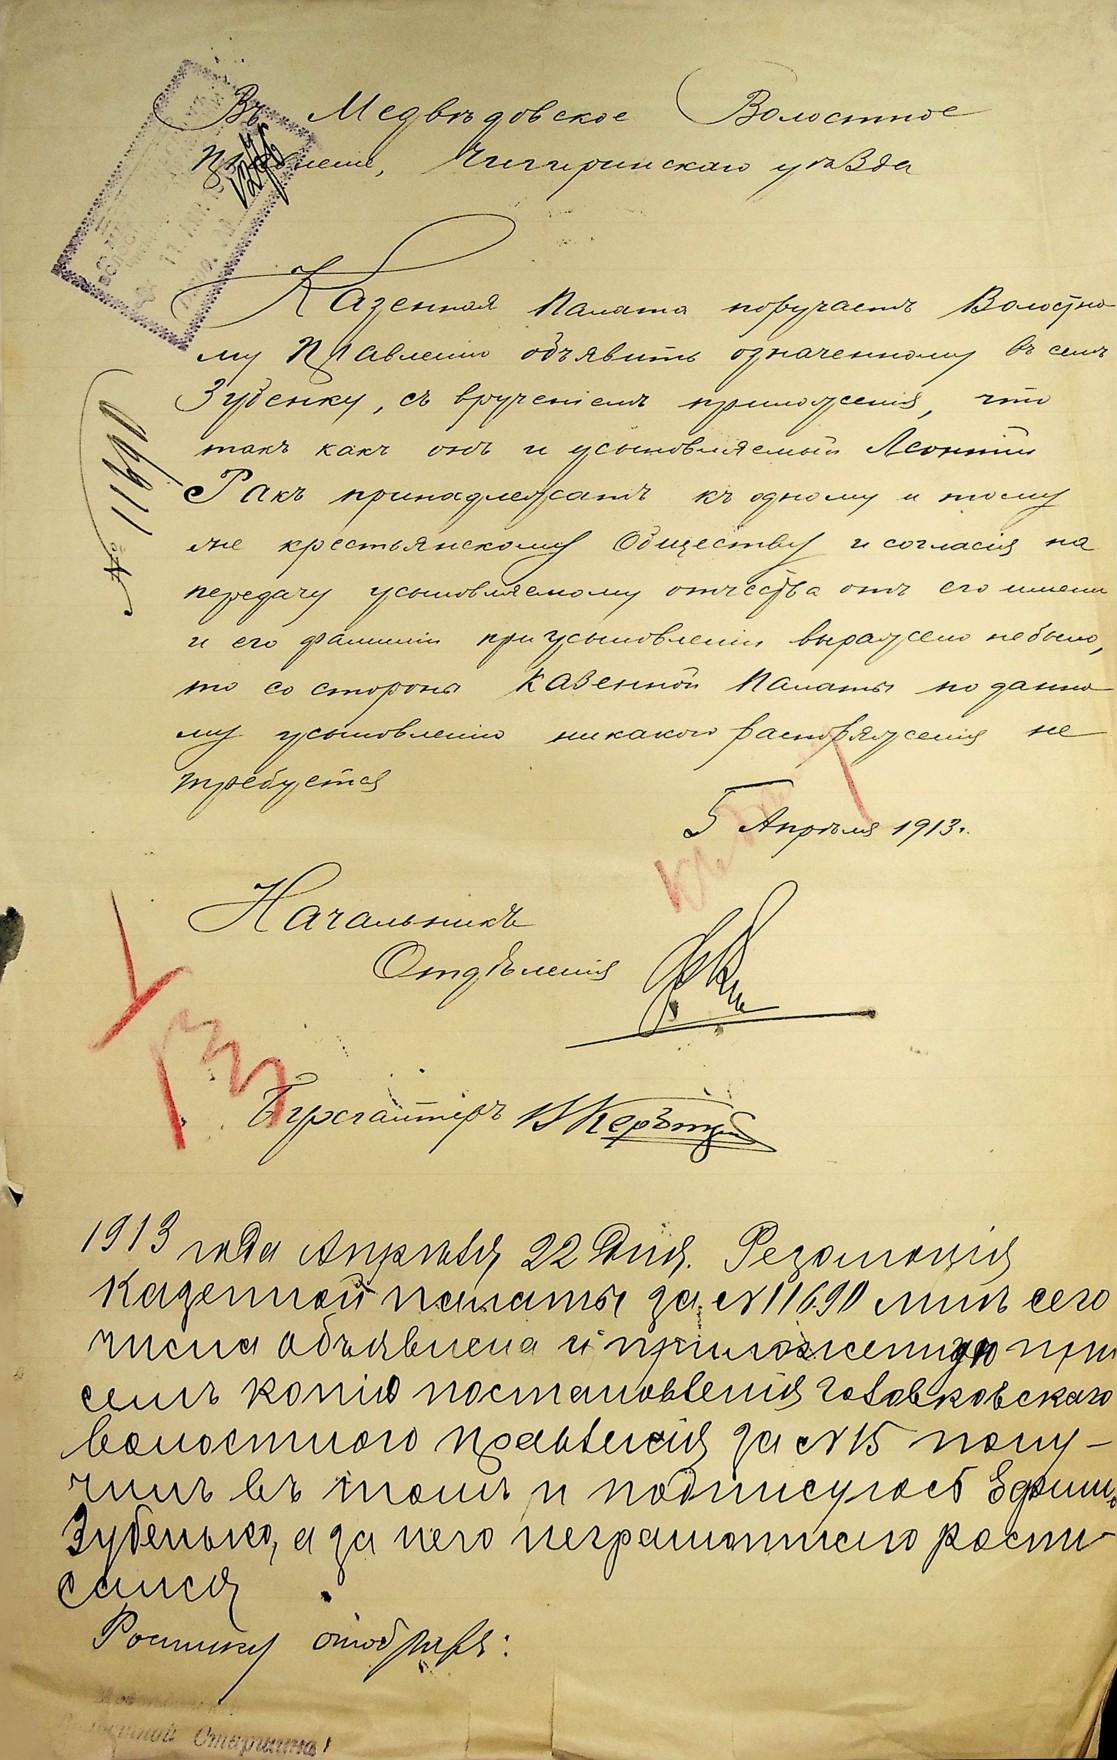 Въ Медвѣдовское Волостное
Правленіе, Чигиринскаго уѣзда
11 АПР 1913
№ 11690
Казенная Палата поручаетъ Волостно-
му Правленію объявить означенному въ семъ
Зубенку, съ врученіемъ приложенія, что
такъ какъ онъ и усыновляемый Леонтій
Ракъ принадлежатъ къ одному и тому
же крестьянскому Обществу и согласія на
передачу усыновляемому отчества отъ его имени
и его фамиліи при усыновленіи выражено не было,
то со стороны Казенной Палаты по данно-
му усыновленію никакого распоряженія не
требуется
5 Апрѣля 1913 г.
Начальникъ
Отдѣленія
Бухгалтеръ
1913 года Апрѣля 22 дня. Резолюція
Казенной палаты за № 11690 мнѣ сего
числа объявлена и приложенную при
семъ копію постановленія Головковскаго
волостного правленія за № 15 полу-
чилъ въ томъ и подписуюсь
Зубенько, а за него неграмотнаго роспи-
сался
Росписку отобралъ:
Волостной Старшина